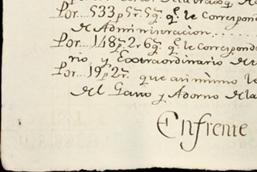 Por...533p.5r.5g.qe. le Correspon
de Administracion......
Por...148p.2r.6g.qe. le Correspond
rio, y Extraordinario de
Por...19p.2r. que asimismo le
del Gano y Adorno dela
Enfrente